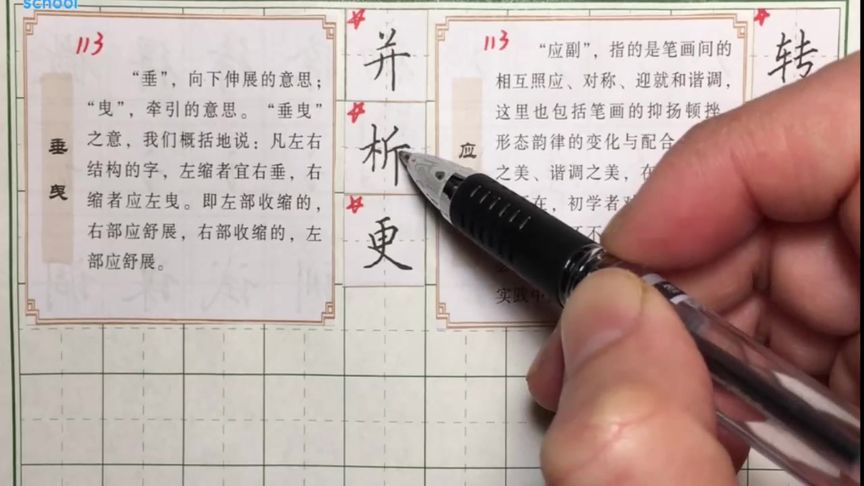 school
113
垂曳
“垂”，向下伸展的意思；
“曳”，牵引的意思。“垂曳”
之意，我们概括地说：凡左右
结构的字，左缩者宜右垂，右
缩者应左曳。即左部收缩的，
右部应舒展，右部收缩的，左
部应舒展。
并
析
更
113
应
“应副”，指的是笔画间的
相互照应、对称、迎就和谐调，
这里也包括笔画的抑扬顿挫、
形态韵律的变化与配合
之美、谐调之美，在
在，初学者
不
实践中
转